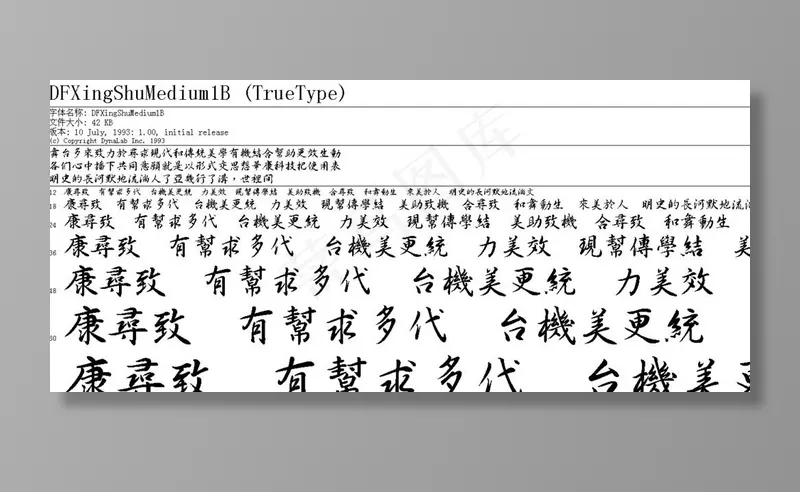 DFXingShuMedium1B (TrueType)
字体名称: DFXingShuMedium1B
文件大小: 42 KB
版本: 10 July, 1993: 1.00, initial release
(c) Copyright DynaLab Inc. 1993
舞台多來致力於尋求現代和傳統美學有機結合幫助更效生動
各們心中播下共同意願就是以形式交思想華康科技把使用表
明史的長河默地流淌人了亞幾行了溝，世裡间
12 康尋致 有幫求多代 台機美更統 力美效 現幫傳學結 美助致機 合尋致 和舞動生 來美於人 明史的長河默地流淌交
18 康尋致 有幫求多代 台機美更統 力美效 現幫傳學結 美助致機 合尋致 和舞動生 來美於人 明史的長河默地流
24 康尋致 有幫求多代 台機美更統 力美效 現幫傳學結 美助致機 合尋致 和舞動生
36 康尋致 有幫求多代 台機美更統 力美效 現幫傳學結 美
48 康尋致 有幫求多代 台機美更統 力美效
康尋致 有幫求多代 台機美更統
康尋致 有幫求多代 台機美更